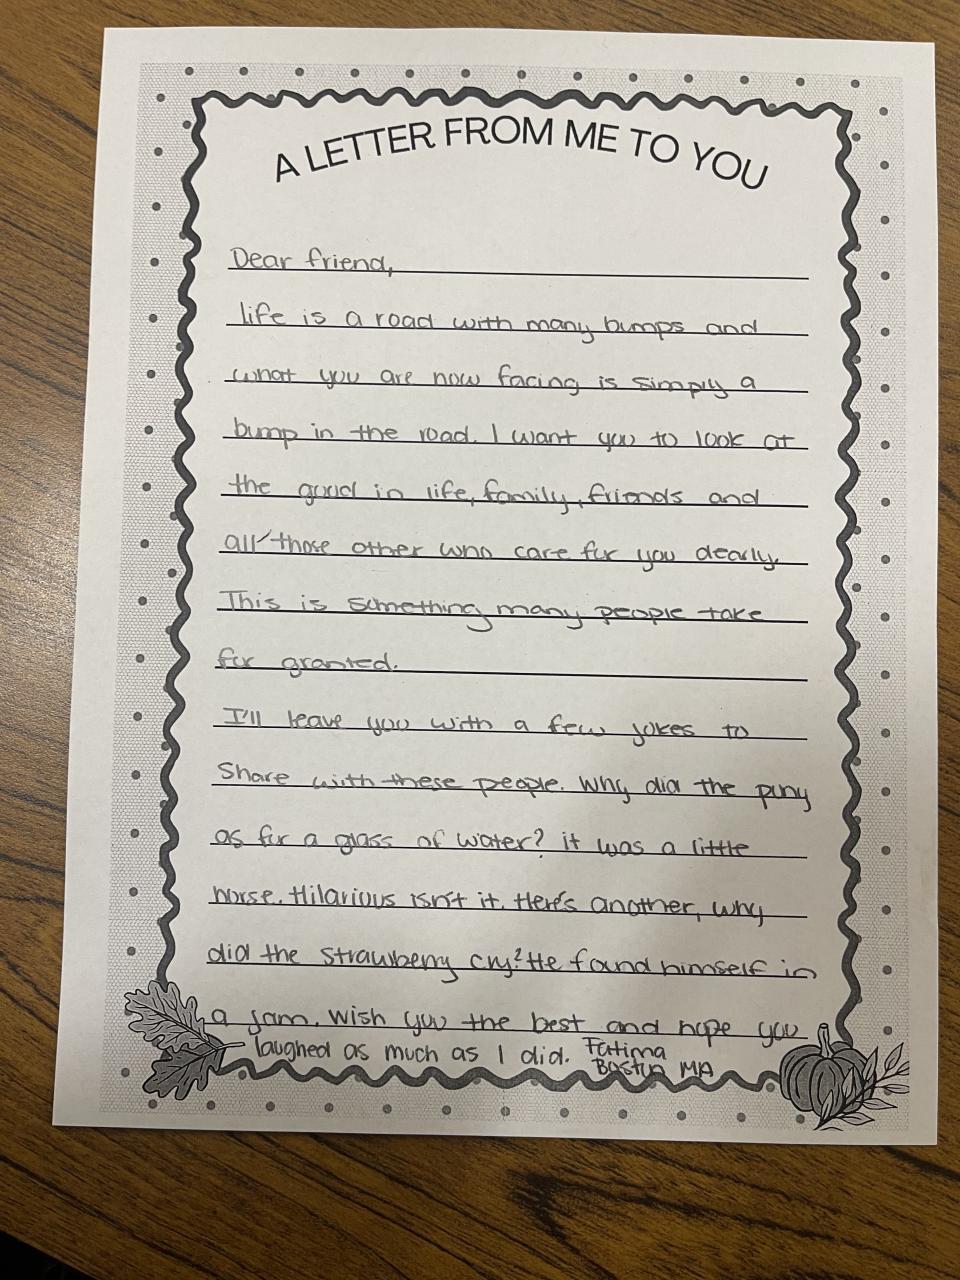 A LETTER FROM ME TO YOU
Dear friend,
life is a road with many bumps and
what you are now facing is simply a
bump in the road. I want you to look at
the good in life, family, friends and
all those other who care for you dearly.
This is something many people take
for granted.
I'll leave you with a few jokes to
Share with these people. Why did the pony
as for a glass of water? it was a little
horse. Hilarious isn't it. Here's another, why
did the strawberry cry? He found himself in
a jam. Wish you the best and hope you
laughed as much as I did. Fatima
Boston MA